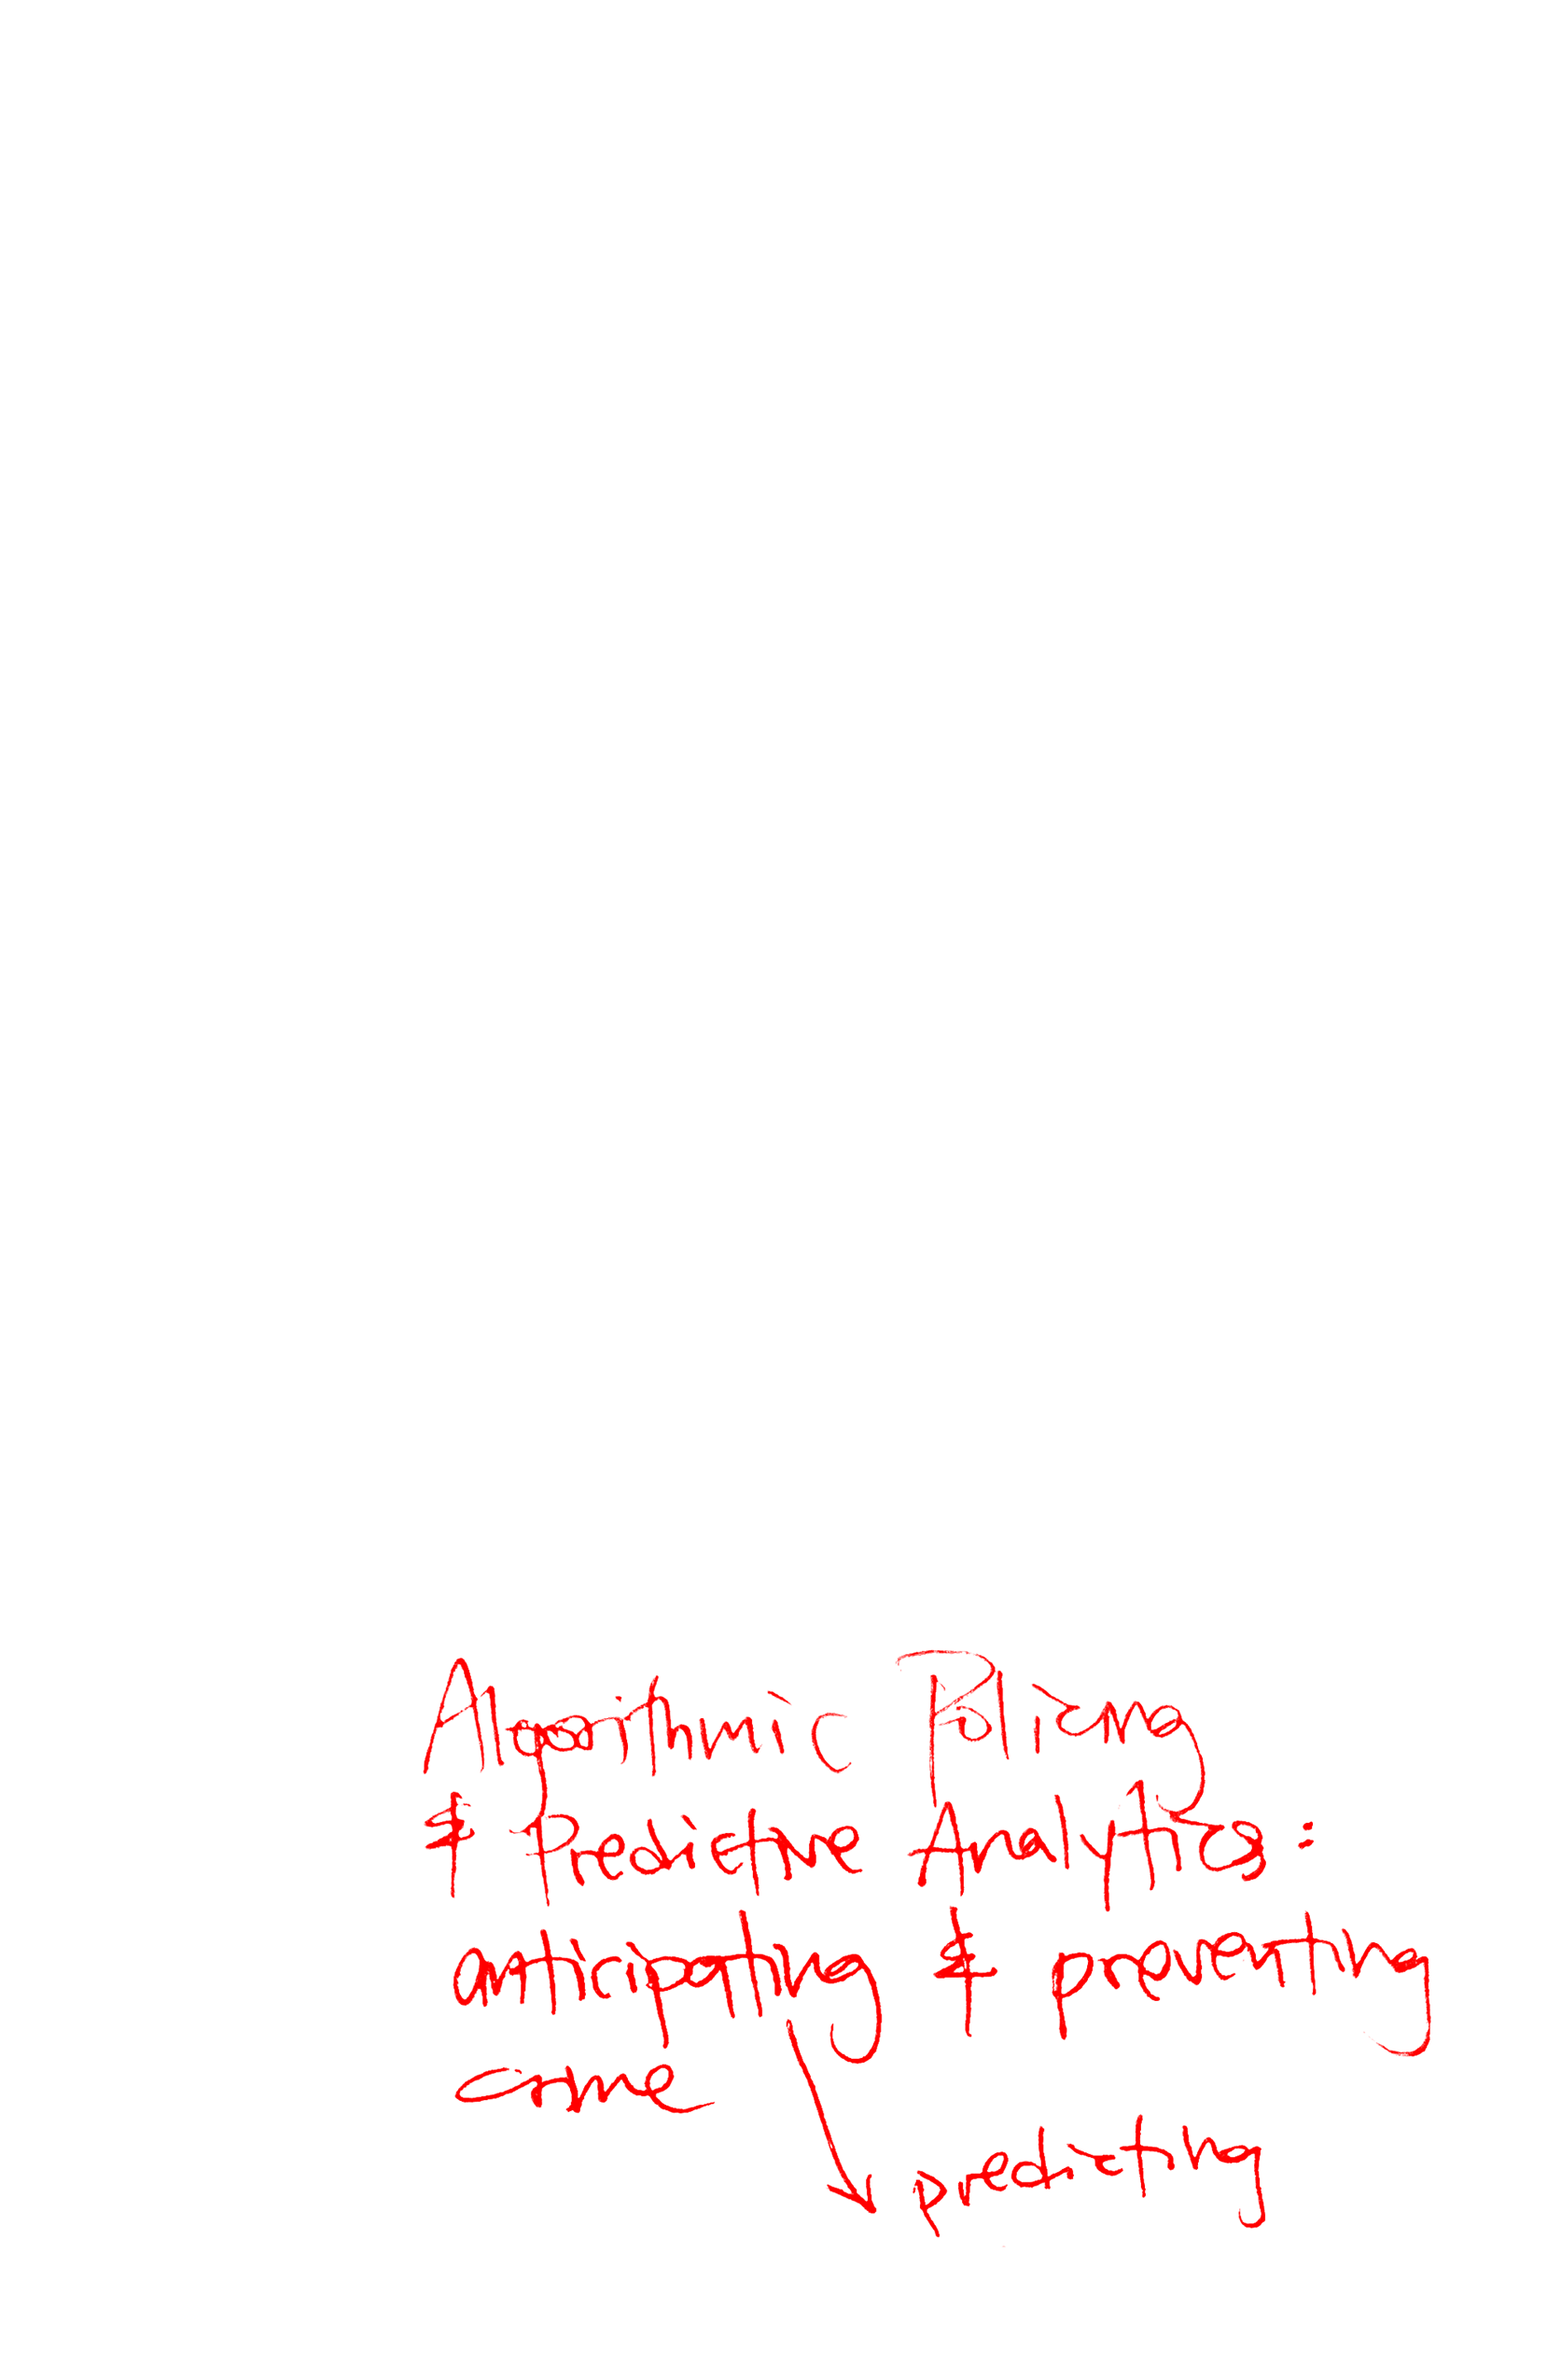 Algorithmic Policing
& Predictive Analytics:
anticipating & preventing
crime
predicting